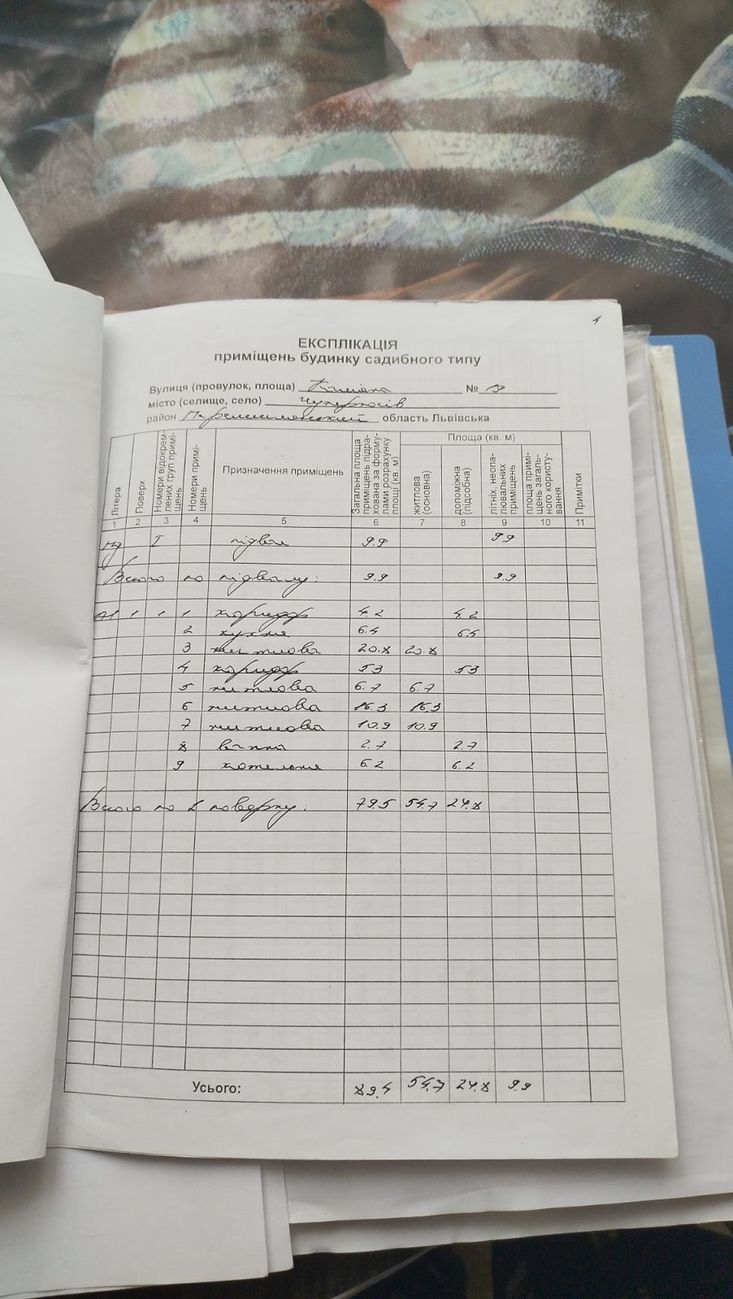 ЕКСПЛІКАЦІЯ
приміщень будинку садибного типу
Вулиця (провулок, площа) №
місто (селище, село) Чуперносів
район Перемишлянський область Львівська
Літера
Поверх
Номери відокрем-
лених груп примі-
щень
Номери примі-
щень
Призначення приміщень
Загальна площа
приміщень підра-
хована за форму-
лами розрахунку
площі (кв. м)
Площа (кв. м)
житлова
(основна)
допоміжна
(підсобна)
літніх, неопа-
лювальних
приміщень
площа примі-
щень загаль-
ного користу-
вання
Примітки
1 2 3 4 5 6 7 8 9 10 11
пд I підвал 9.9 9.9
Всього по підвалу: 9.9 9.9
А1 1 1 1 коридор 4.2 4.2
2 кухня 6.4 6.4
3 житлова 20.8 20.8
4 коридор 5.3 5.3
5 житлова 6.7 6.7
6 житлова 16.3 16.3
7 житлова 10.9 10.9
8 ванна 2.7 2.7
9 котельня 6.2 6.2
Всього по 1 поверху: 79.5 54.7 24.8
Усього: 89.4 54.7 24.8 9.9